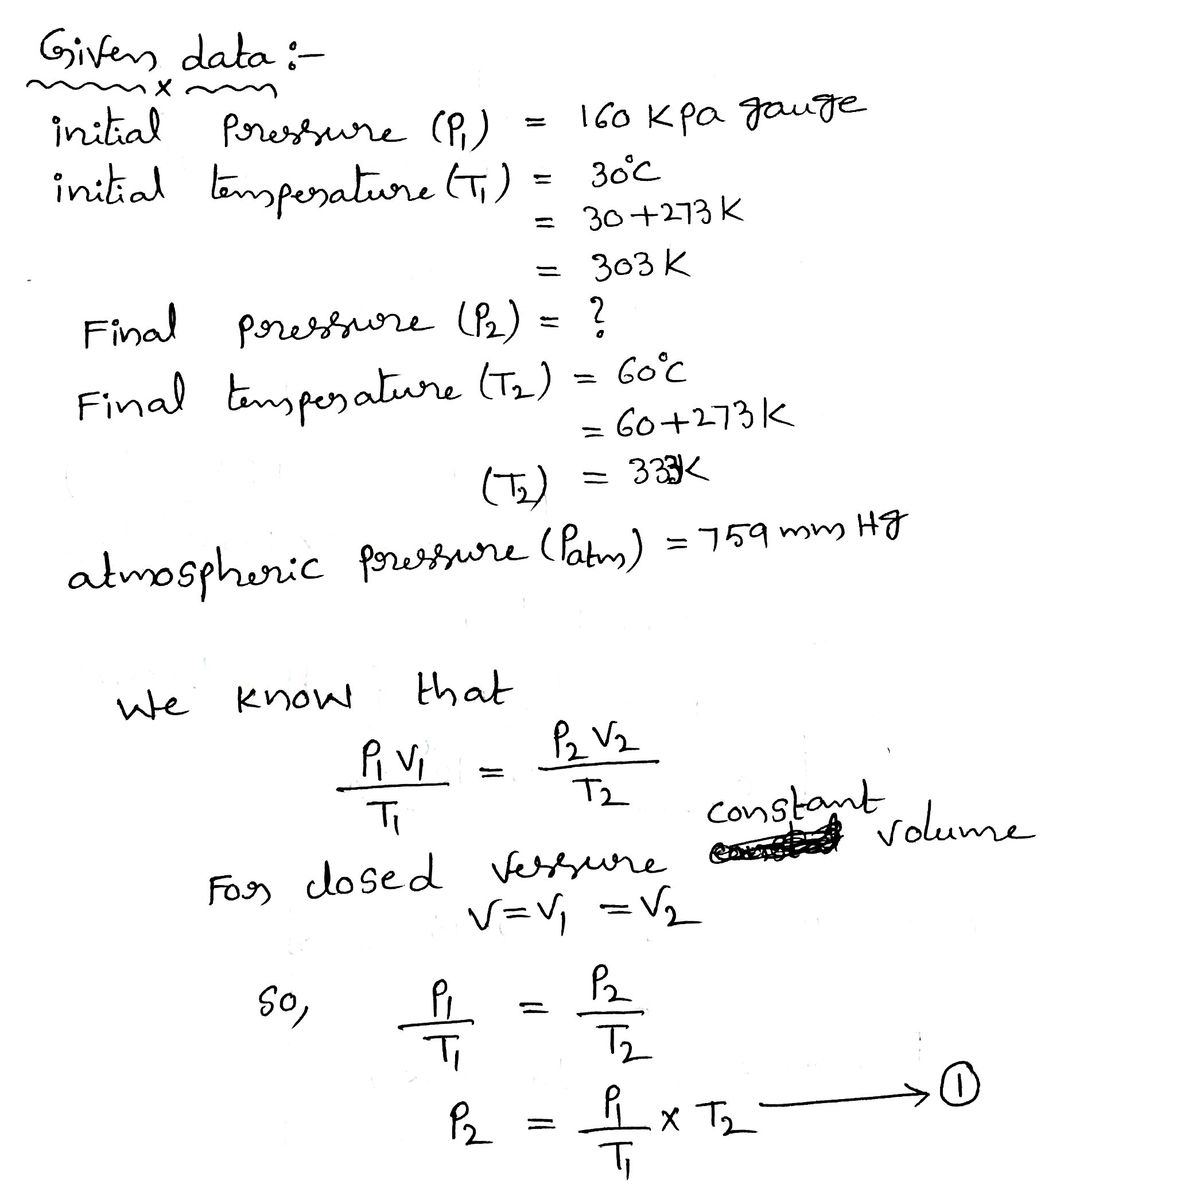 Given data :-
initial pressure (P₁) = 160 Kpa gauge
initial temperature (T₁) = 30°C
= 30+273K
= 303K
Final pressure (P₂) = ?
Final temperature (T₂) = 60°C
= 60+273K
(T₂) = 333K
atmospheric pressure (Patm) = 759 mm Hg
We know that
P₁V₁/T₁ = P₂V₂/T₂
For closed vessure constant volume
V=V₁ =V₂
So, P₁/T₁ = P₂/T₂
P₂ = P₁/T₁ × T₂ ⟶ ①